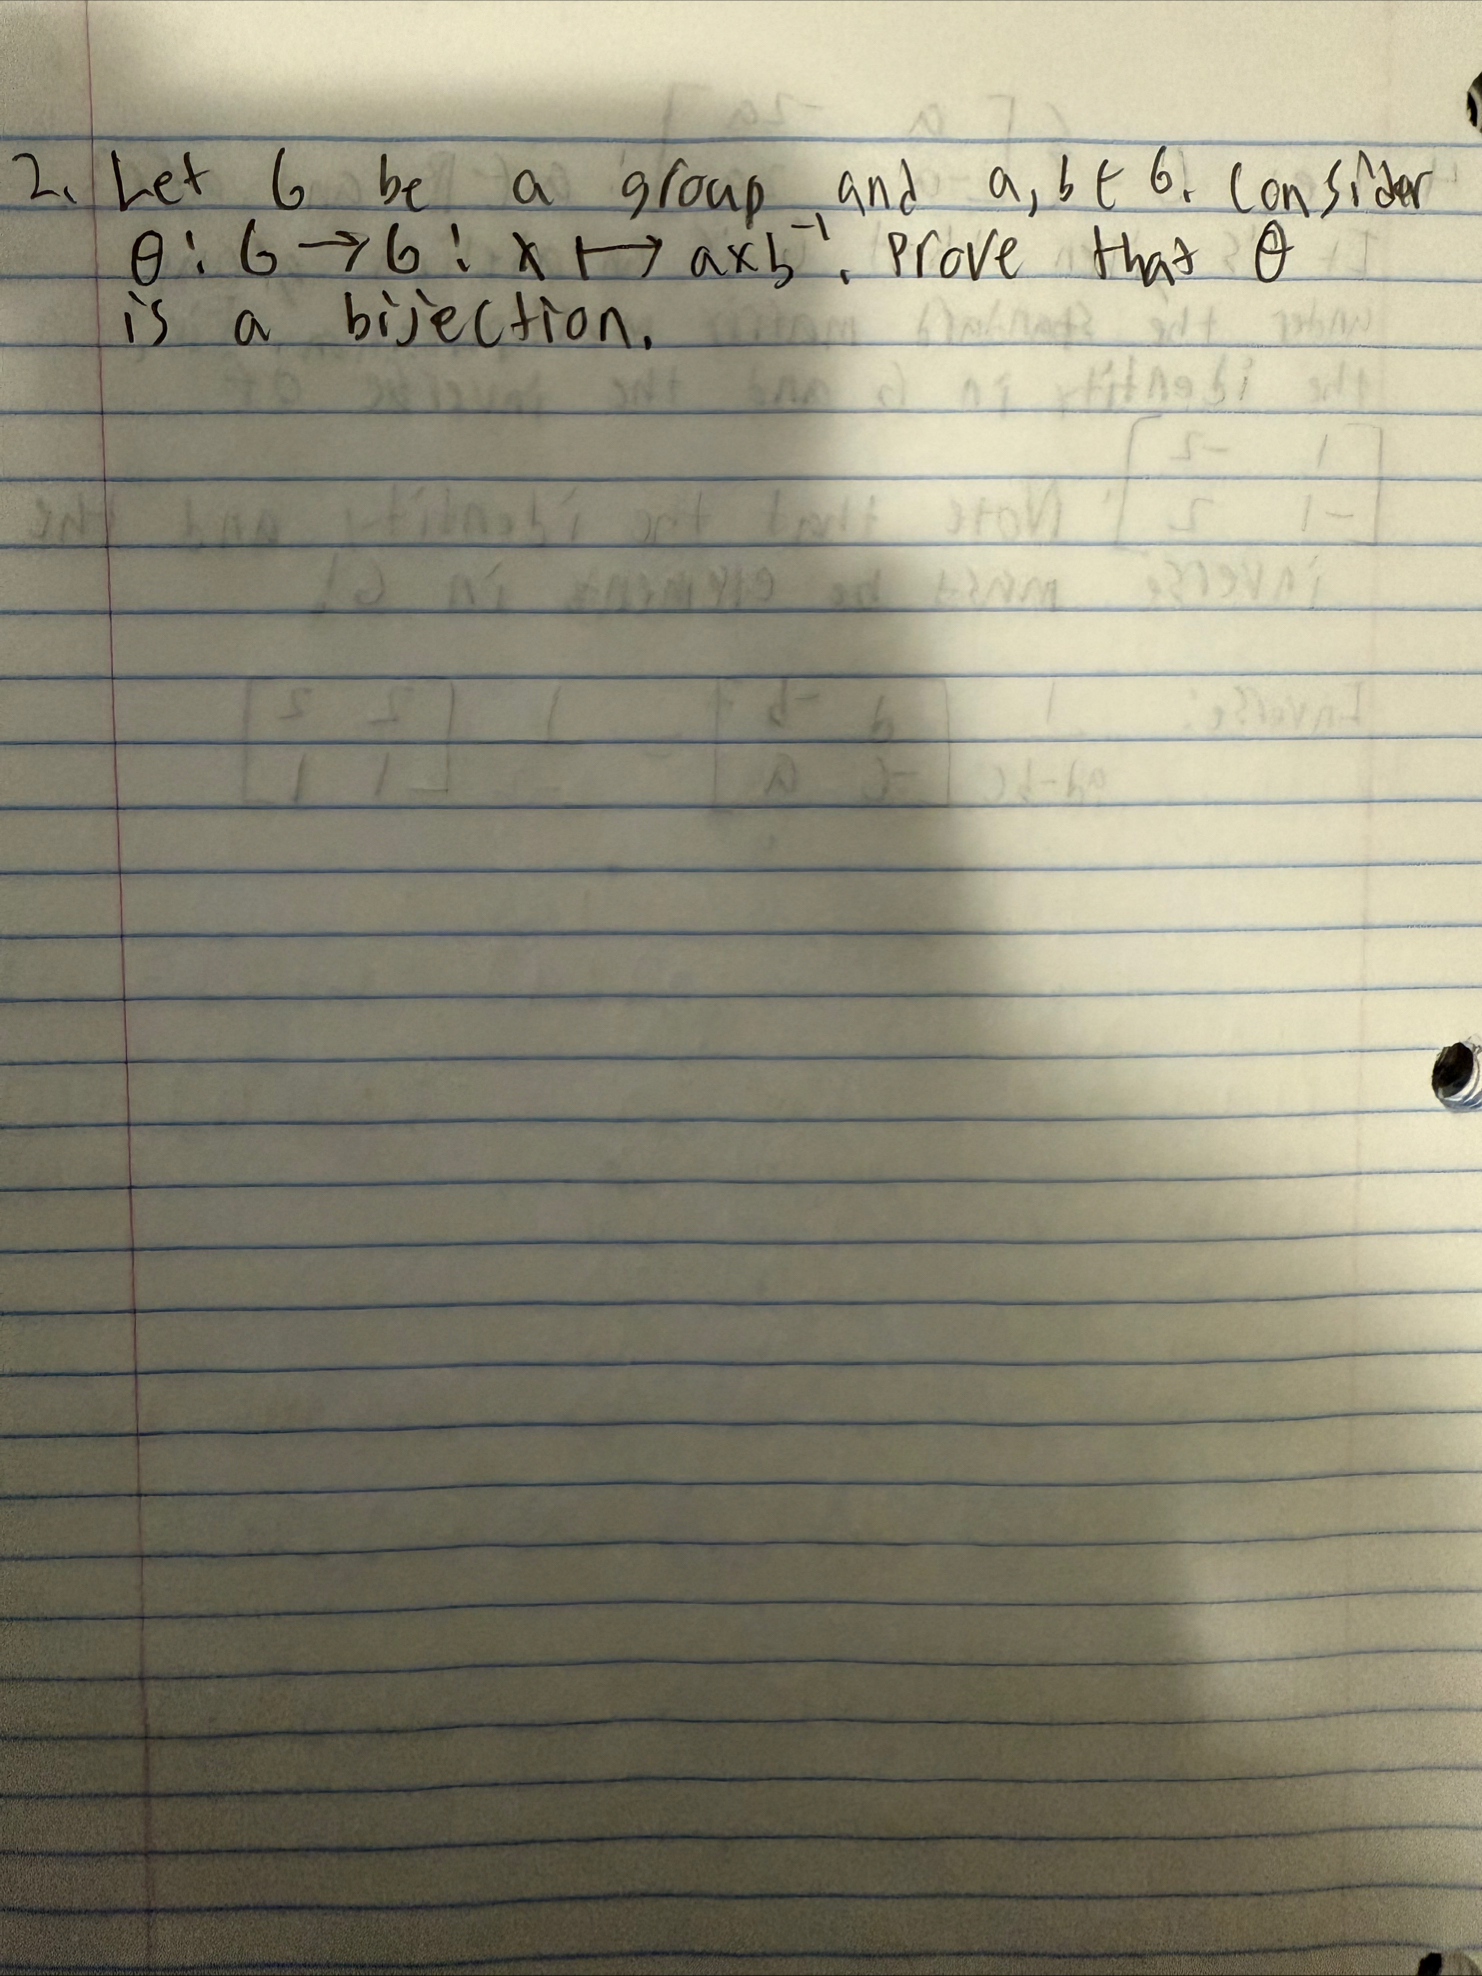 2. Let G be a group and a, b ∈ G. Consider
θ: G → G: x ↦ axb⁻¹. Prove that θ
is a bijection.